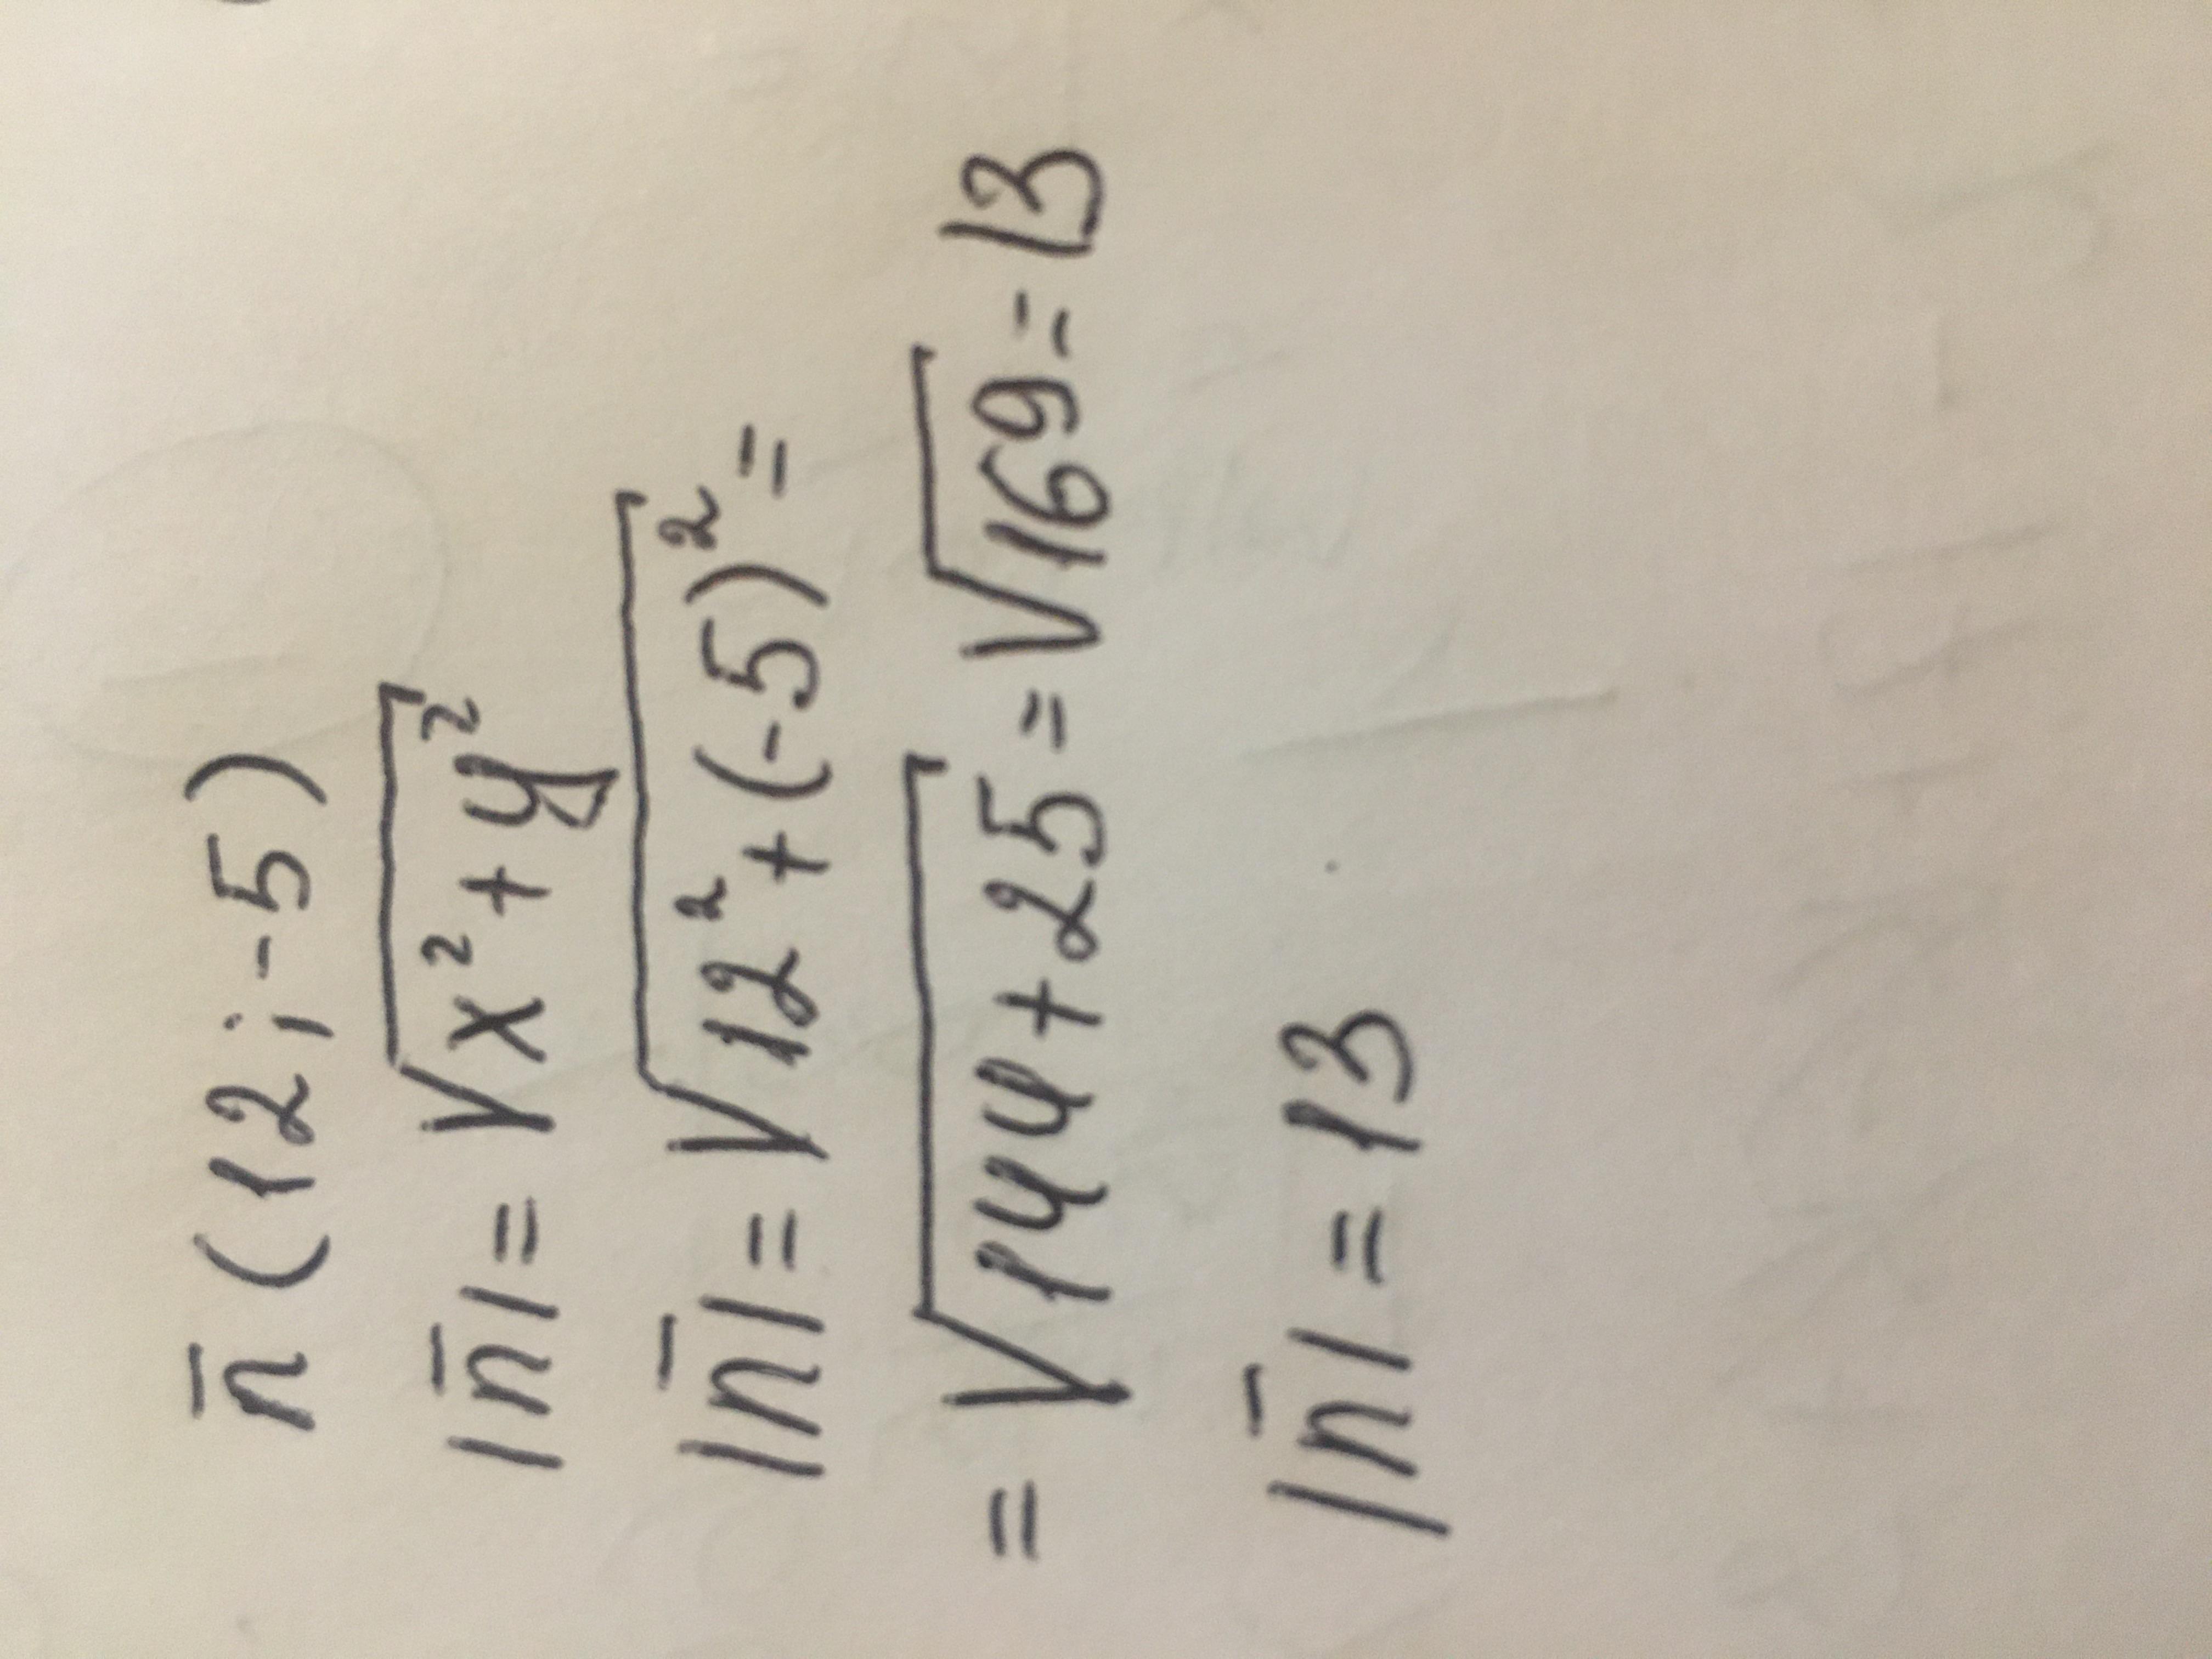 n̄ (12; -5)
|n̄| = √x² + y²
|n̄| = √12² + (-5)² =
= √144 + 25 = √169 = 13
|n̄| = 13